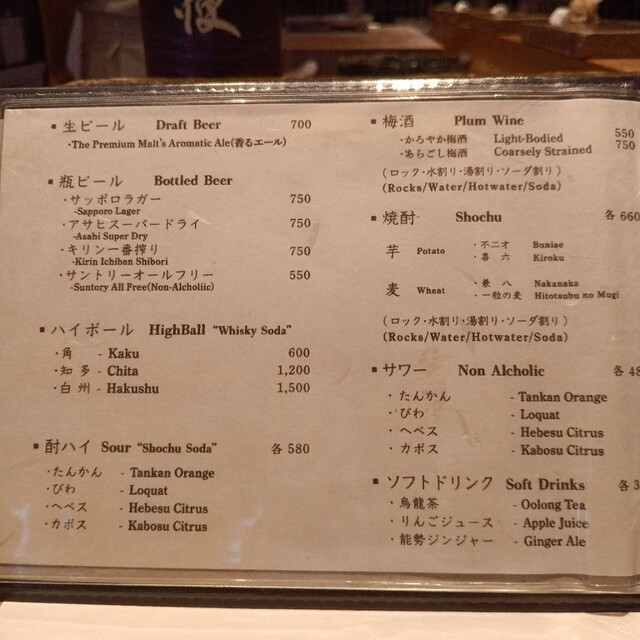 ■ 生ビール Draft Beer 700
・The Premium Malt's Aromatic Ale(香るエール)
■ 瓶ビール Bottled Beer
・サッポロラガー 750
-Sapporo Lager
・アサヒスーパードライ 750
-Asahi Super Dry
・キリン一番搾り 750
-Kirin Ichiban Shibori
・サントリーオールフリー 550
-Suntory All Free(Non-Alcholiic)
■ ハイボール HighBall "Whisky Soda"
・角 - Kaku 600
・知多 - Chita 1,200
・白州 - Hakushu 1,500
■ 酎ハイ Sour "Shochu Soda" 各 580
・たんかん - Tankan Orange
・びわ - Loquat
・ヘベス - Hebesu Citrus
・カボス - Kabosu Citrus
■ 梅酒 Plum Wine
・かろやか梅酒 Light-Bodied 550
・あらごし梅酒 Coarsely Strained 750
(ロック・水割り・湯割り・ソーダ割り)
(Rocks/Water/Hotwater/Soda)
■ 焼酎 Shochu 各 660
芋 Potato ・不二才 Bunise
・喜六 Kiroku
麦 Wheat ・兼八 Nakanaka
・一粒の麦 Hitotsubu no Mugi
(ロック・水割り・湯割り・ソーダ割り)
(Rocks/Water/Hotwater/Soda)
■ サワー Non Alcholic 各 48
・たんかん - Tankan Orange
・びわ - Loquat
・ヘベス - Hebesu Citrus
・カボス - Kabosu Citrus
■ ソフトドリンク Soft Drinks 各 3
・烏龍茶 - Oolong Tea
・りんごジュース - Apple Juice
・能勢ジンジャー - Ginger Ale